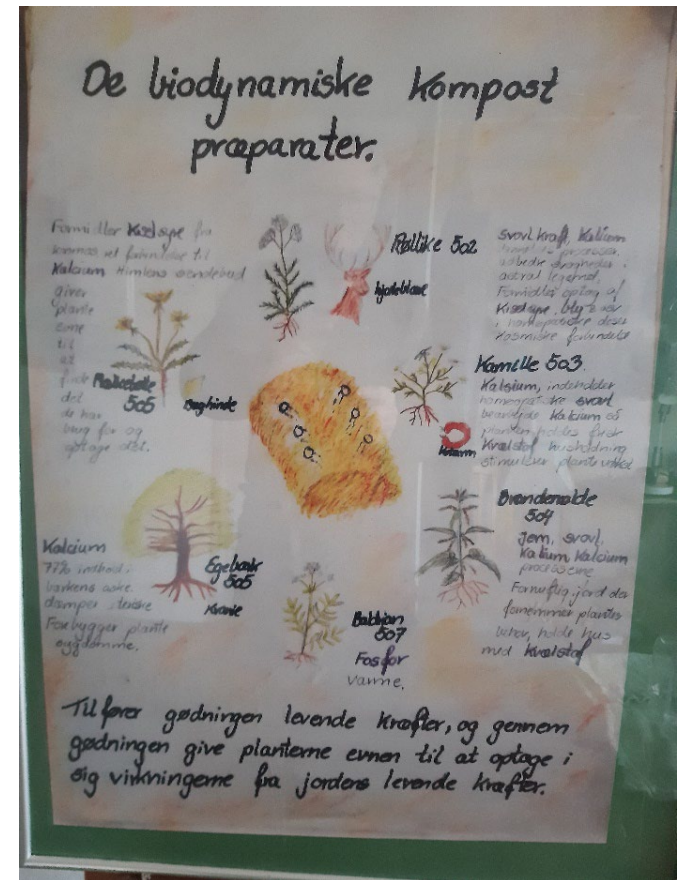 De biodynamiske Kompost
præparater.
Formidler Kiselsyre fra
Kalcium Himlens
giver
plante
til
at
det
de har
brug for og
optage det.
505
Bughinde
Røllike 502
hjorteblære
svovl kraft, Kalium
astral legemet.
Formidler optag af
Kiselsyre, bly
Kosmiske forbindelse
Kamille 503.
Kalsium, indeholder
svovl
Kalcium og
planten holdes frisk
Kvælstof husholdning
Tarm
stimulerer plantevækst
Brændenælde
504
Jern, svovl,
Kalium Kalcium
processerne
Fornuftig jord der
fornemmer plantes
behov, holde hus
med Kvælstof
Kalcium
77% indhold i
barkens aske.
damper
Forebygger plante
sygdomme.
Egebark
505
Kranie
Baldrian
507
Fosfor
varme.
Tilfører gødningen levende kræfter, og gennem
gødningen give planterne evnen til at optage i
sig virkningerne fra jordens levende kræfter.